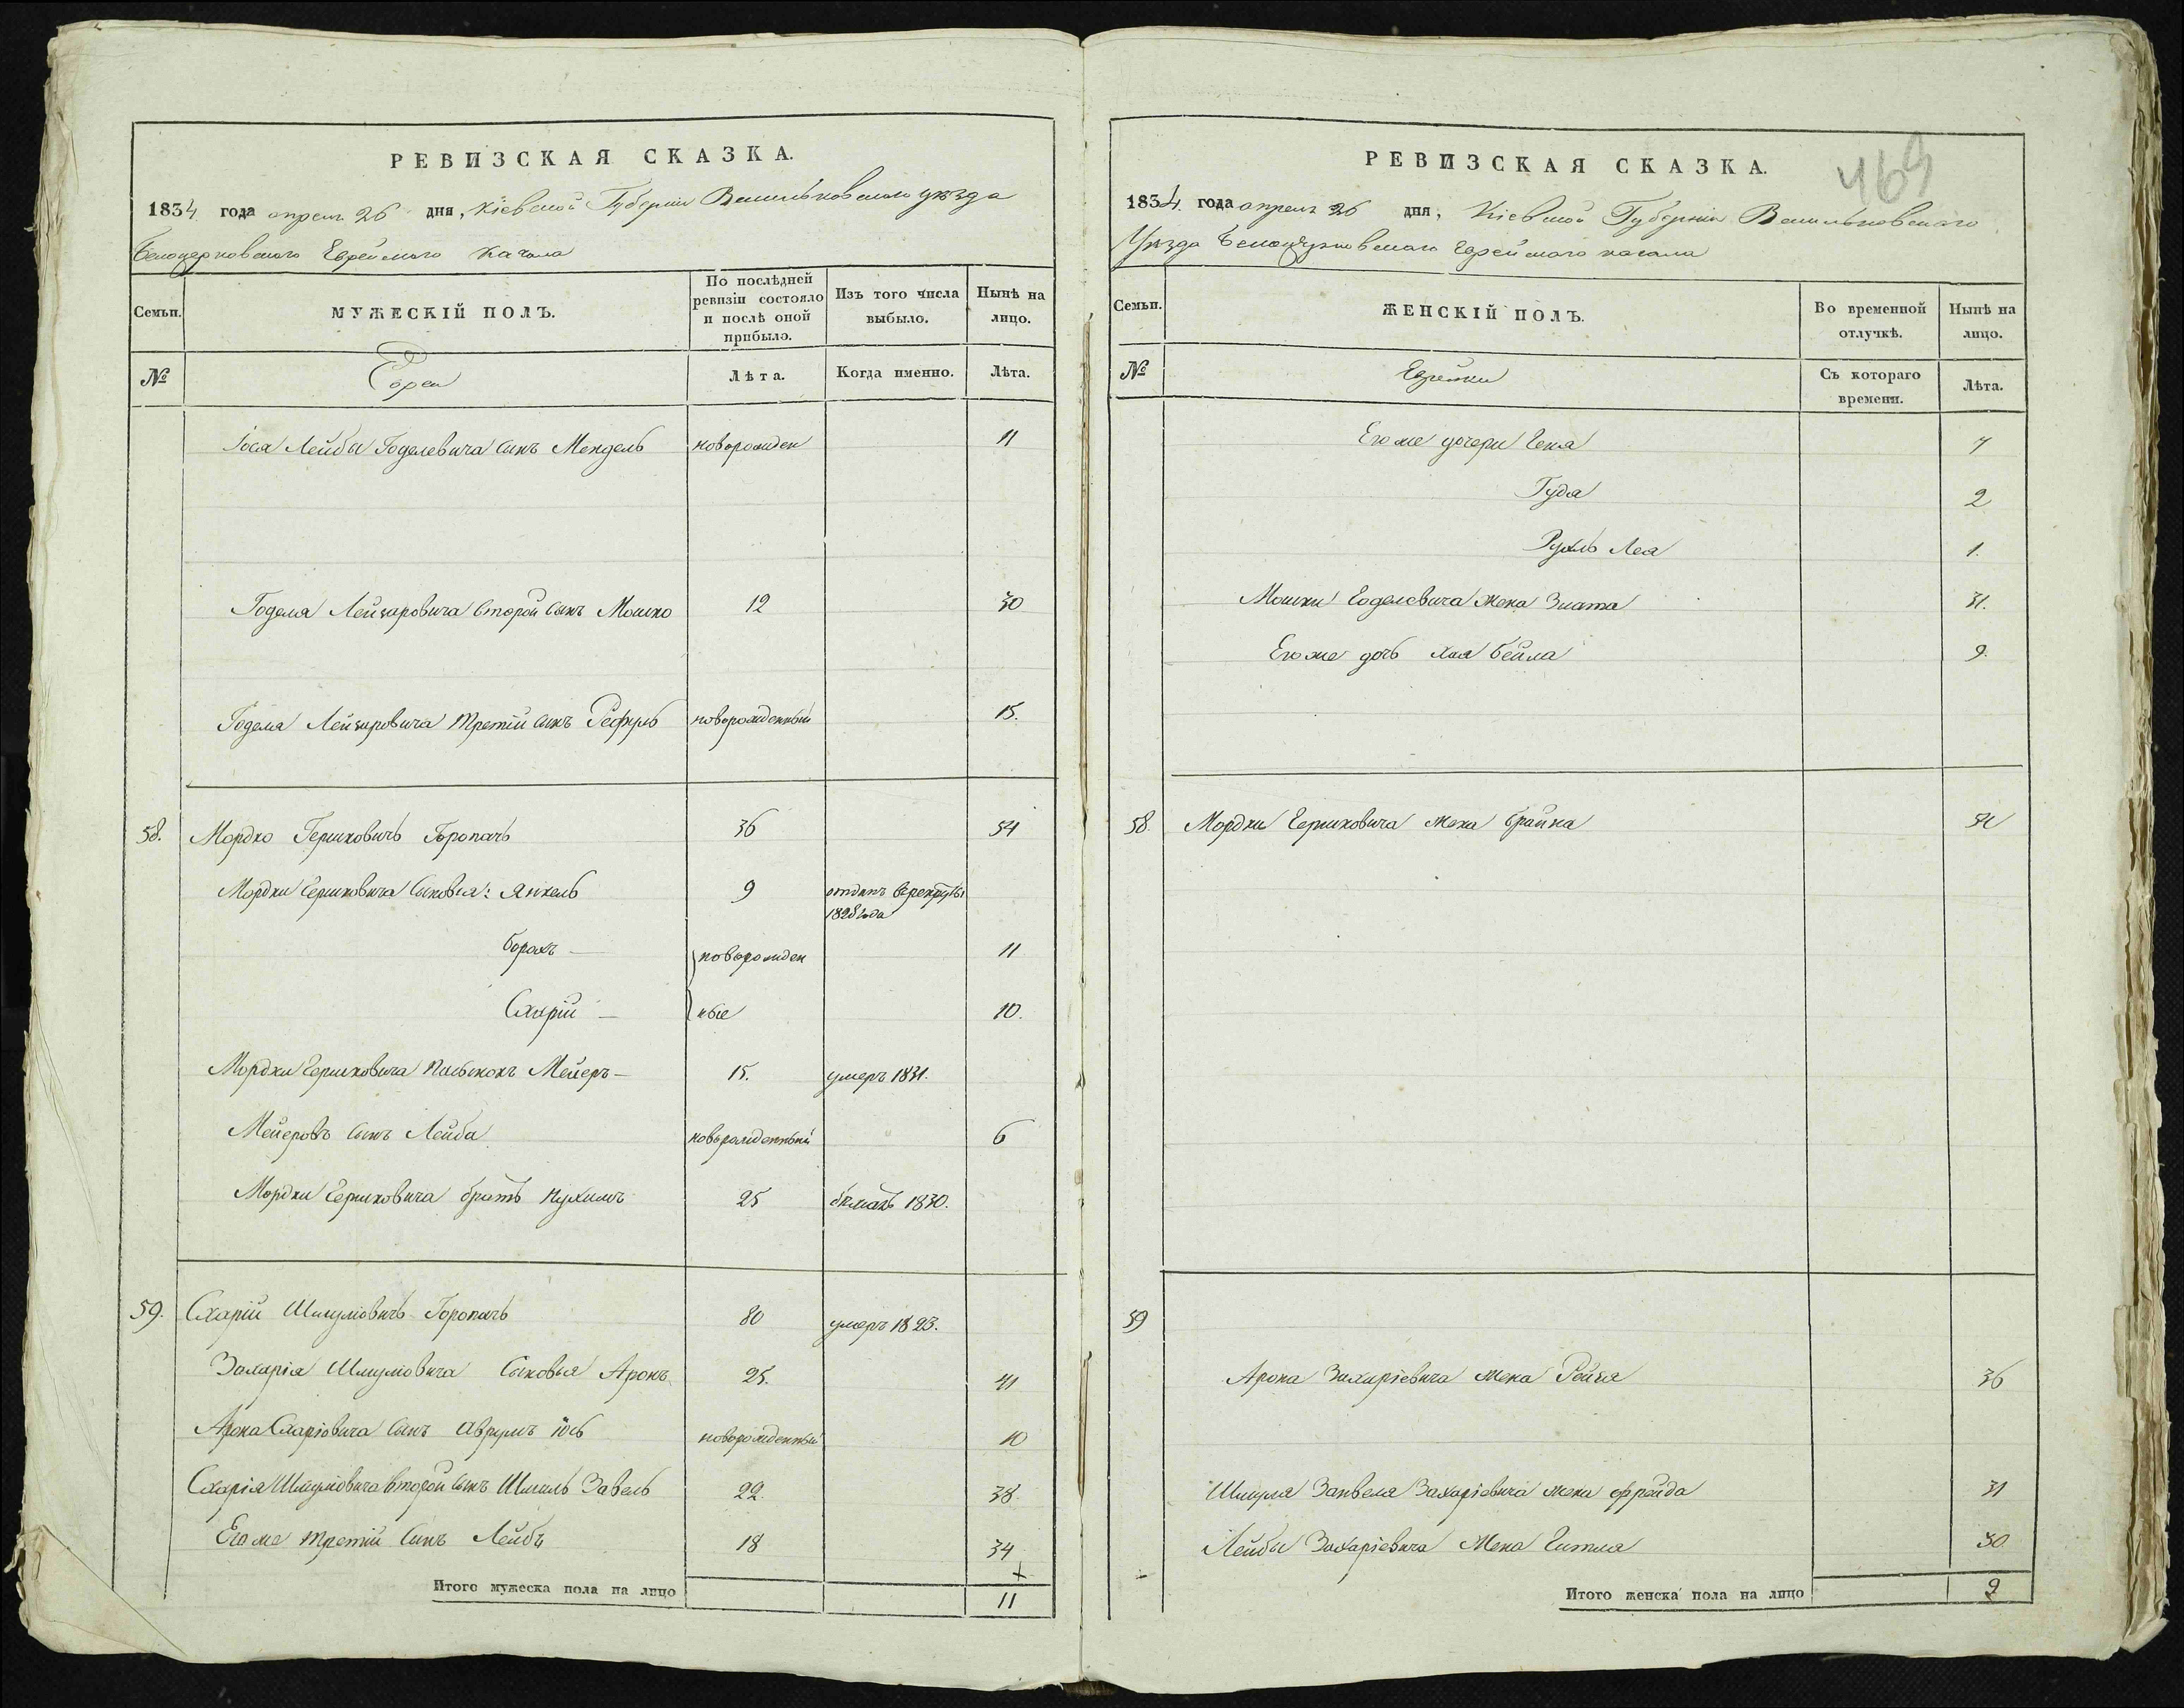 РЕВИЗСКАЯ СКАЗКА.
1834 года апреля 26 дня, Кіевской Губерніи Васильковскаго уѣзда
Белоцерковскаго Еврейскаго кагала
Семьи.
МУЖЕСКІЙ ПОЛЪ.
По послѣдней ревизіи состояло и послѣ оной прибыло.
Изъ того числа выбыло.
Нынѣ на лицо.
№
Евреи
Лѣта.
Когда именно.
Лѣта.
Іося Лейбы Годелевича сынъ Мендель новорожден 11
Годеля Лейзаровича второй сынъ Мошко 12 30
Годеля Лейзаровича третій сынъ новорожденный 15.
58. Мордко Гершковичъ Горопачъ 36 54
Мордки Гершковича сыновья: Янкель 9 отданъ въ рекруты
1828 года
Борохъ — новорожден 11
Схарій — ные 10.
Мордки Гершковича Мейеръ — 15. умеръ 1831.
Мейеровъ сынъ Лейба новорожденный 6
Мордки Гершковича братъ Нухимъ 25 бѣжалъ 1830.
59. Схарій Шмуліовичъ Горопачъ 80 умеръ 1823.
Захарія Шмуліовича сыновья Аронъ 25. 41
Арона Схаріовича сынъ Аврумъ Іось новорожденный 10
Схарія Шмуліовича второй сынъ Шмиль Завель 22. 38
Его же третій сынъ Лейбъ 18 34
Итого мужеска пола на лицо 11
469
РЕВИЗСКАЯ СКАЗКА.
1834 года апреля 26 дня, Кіевской Губерніи Васильковскаго
Уѣзда Белоцерковскаго Еврейскаго кагала
Семьи.
ЖЕНСКІЙ ПОЛЪ.
Во временной отлучкѣ.
Нынѣ на лицо.
№
Еврейки
Съ котораго времени.
Лѣта.
Его же дочери Геня 7
Гуда 2
Рухль Лея 1.
Мошки Годелевича жена Злата 31.
Его же дочь Хая Бейла 9.
58. Мордки Гершковича жена Брайна
59
Арона Захаріевича жена Рейзя 36
Шмуля Занвеля Захаріевича жена Фрейда 31
Лейбы Захаріевича жена Гитля 30
Итого женска пола на лицо 9